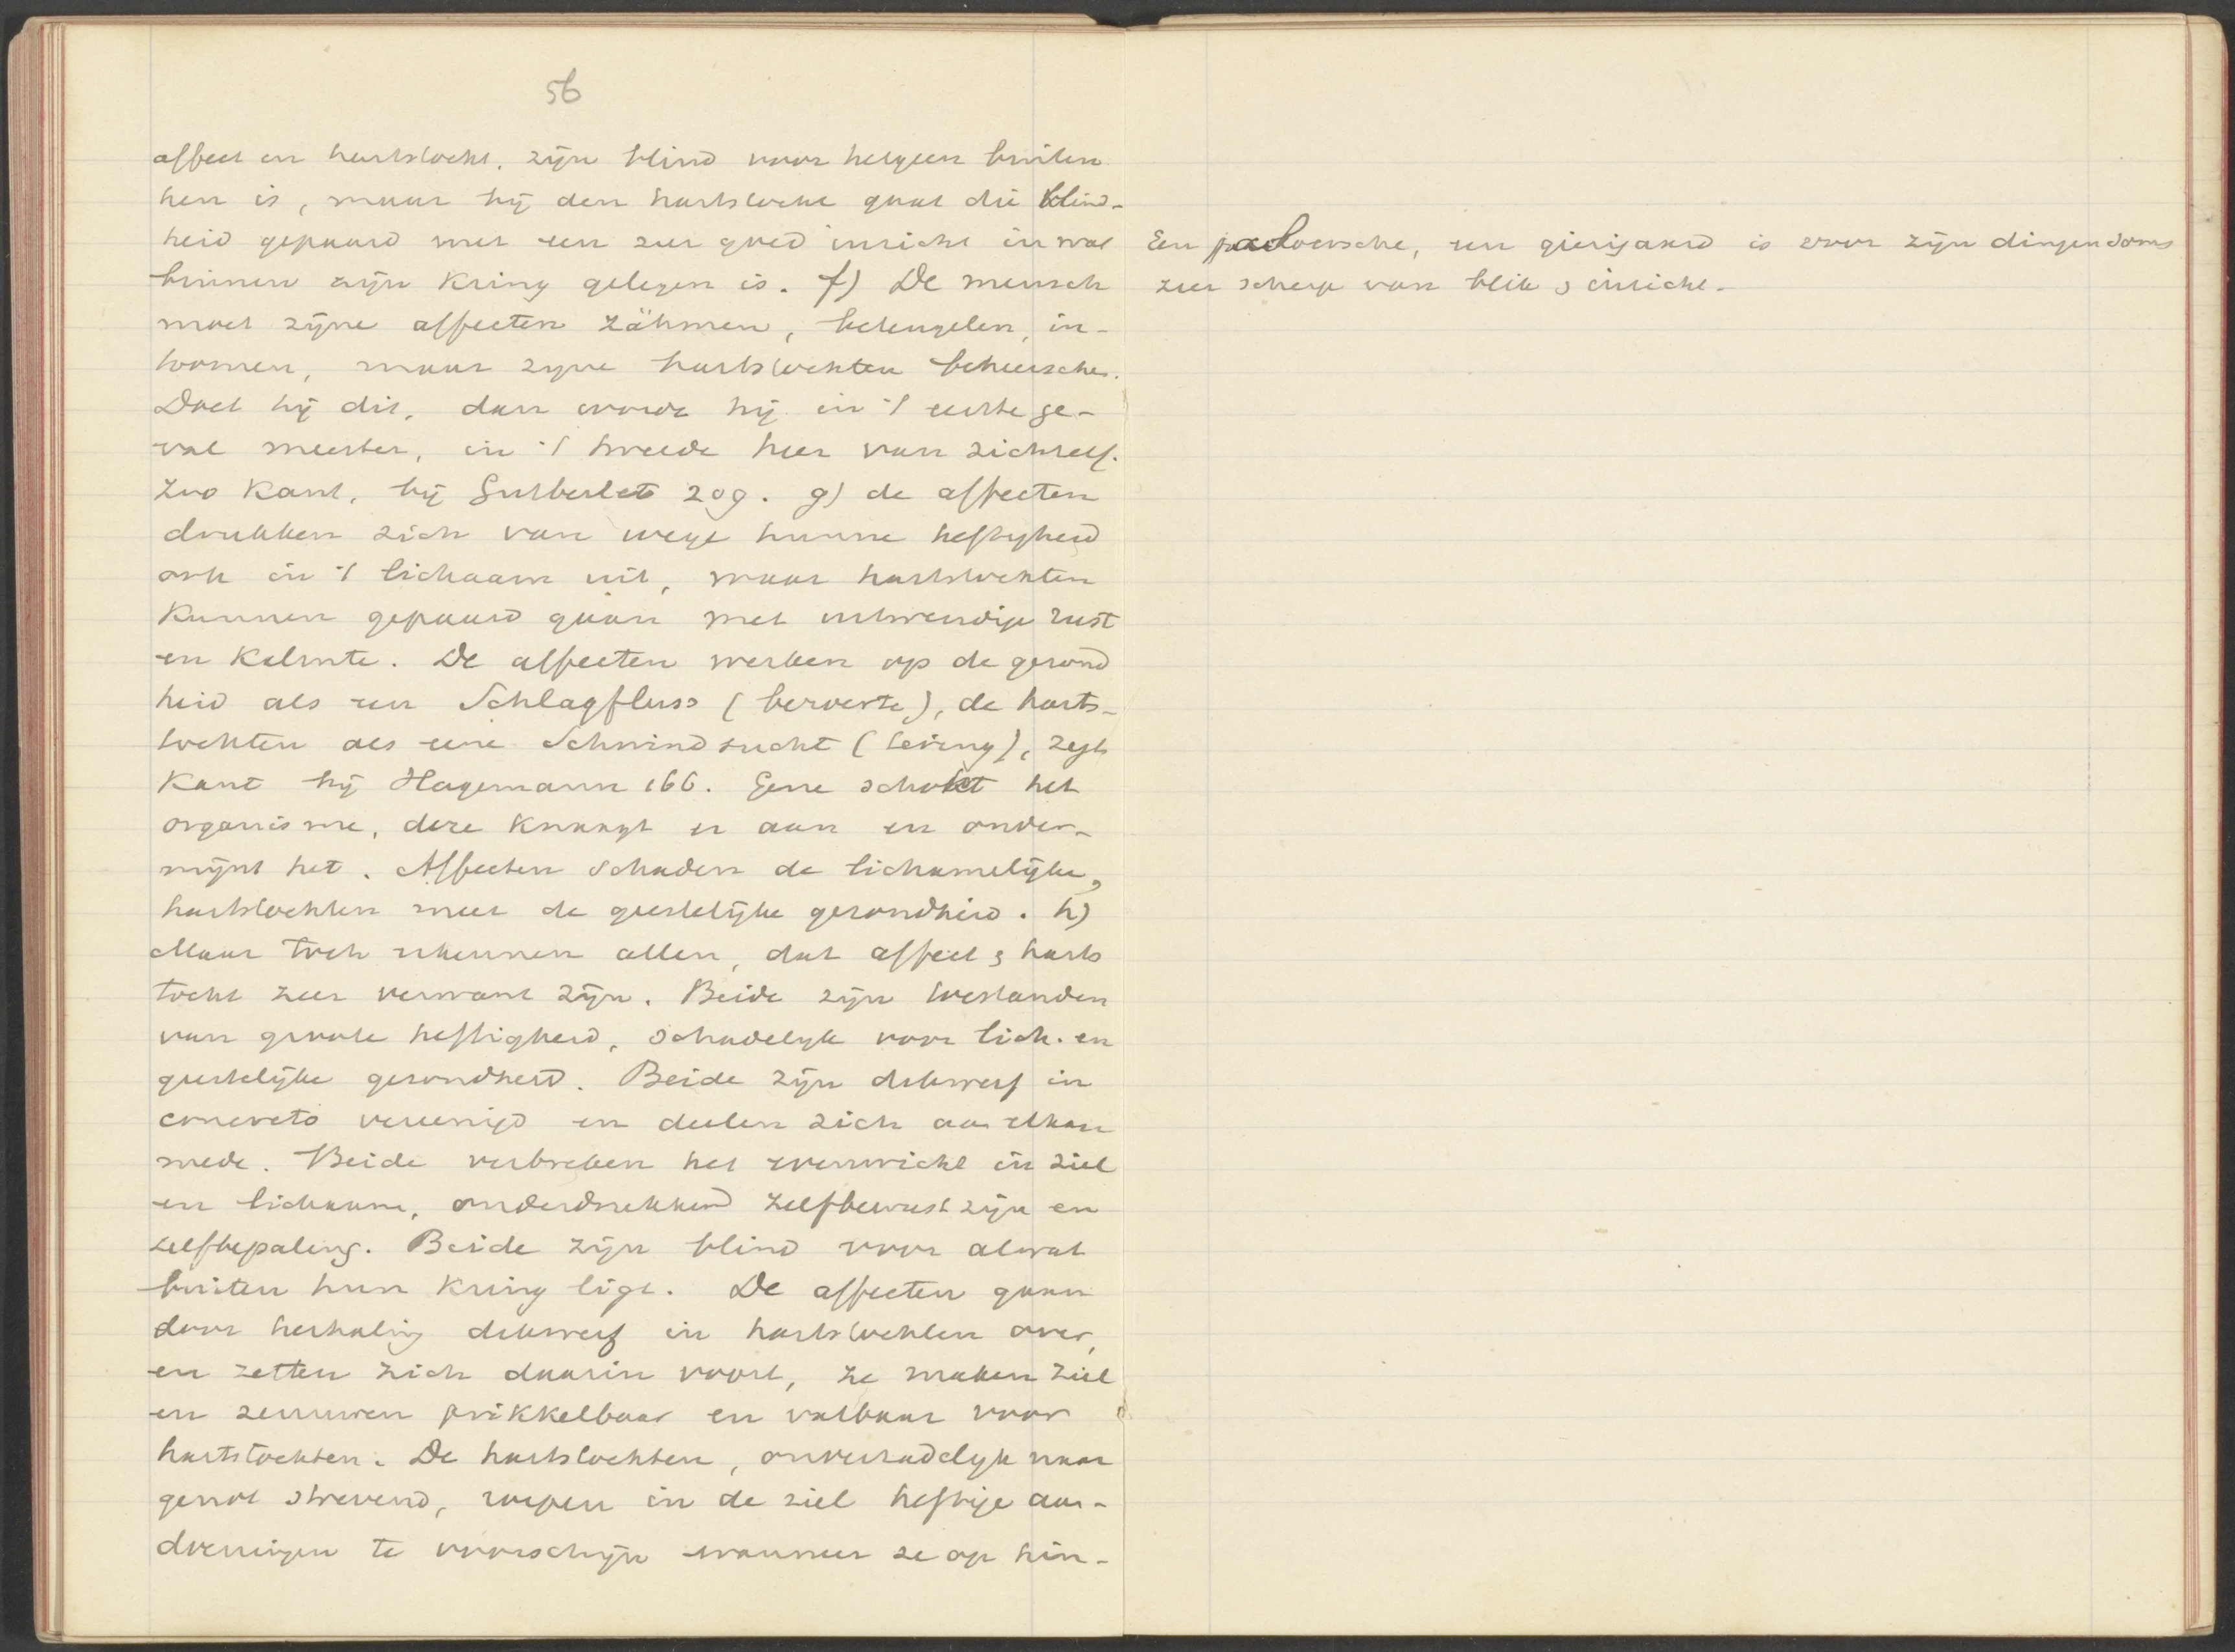 56
affect en hartstocht, zijn blind voor hetgeen buiten
hen is, maar bij den hartstocht gaat die blind-
heid gepaard met een zeer goed inzicht in wat
binnen zijn kring gelegen is. f) De mensch
moet zijne affecten zähmen, beteugelen, in-
toomen, maar zijne hartstochten beheerschen.
Doet hij dit, dan wordt hij in 't eerste ge-
val meester, in 't tweede heer van zichzelf.
Zoo Kant, bij Gutberlet 209. g) de affecten
drukken zich van wege hunne heftigheid
ook in 't lichaam uit, maar hartstochten
kunnen gepaard gaan met uitwendige rust
en kalmte. De affecten werken op de gezond
heid als een Schlagfluss (beroerte), de harts-
tochten als eene Schwindsucht (tering), zegt
Kant bij Hagemann 166. Gene schokt het
organisme, deze knaagt er aan en onder-
mijnt het. Affecten schaden de lichamelijke,
hartstochten meer de geestelijke gezondheid. h)
Maar toch erkennen allen, dat affect & harts
tocht zeer verwant zijn. Beide zijn toestanden
van groote heftigheid, schadelijk voor lich. en
geestelijke gezondheid. Beide zijn dikwerf in
concreto vereenigd en deelen zich aan elkaar
mede. Beide verbreken het evenwicht in ziel
en lichaam, onderdrukkend zelfbewustzijn en
zelfbepaling. Beide zijn blind voor alwat
buiten hun kring ligt. De affecten gaan
door herhaling dikwerf in hartstochten over,
en zetten zich daarin voort, ze maken ziel
en zenuwen prikkelbaar en vatbaar voor
hartstochten. De hartstochten, onverzadelijk naar
genot strevend, roepen in de ziel heftige aan-
doeningen te voorschijn wanneer ze op hin-
Een jaloersche, een gierigaard is voor zijn dingen soms
zeer scherp van blik & inzicht.